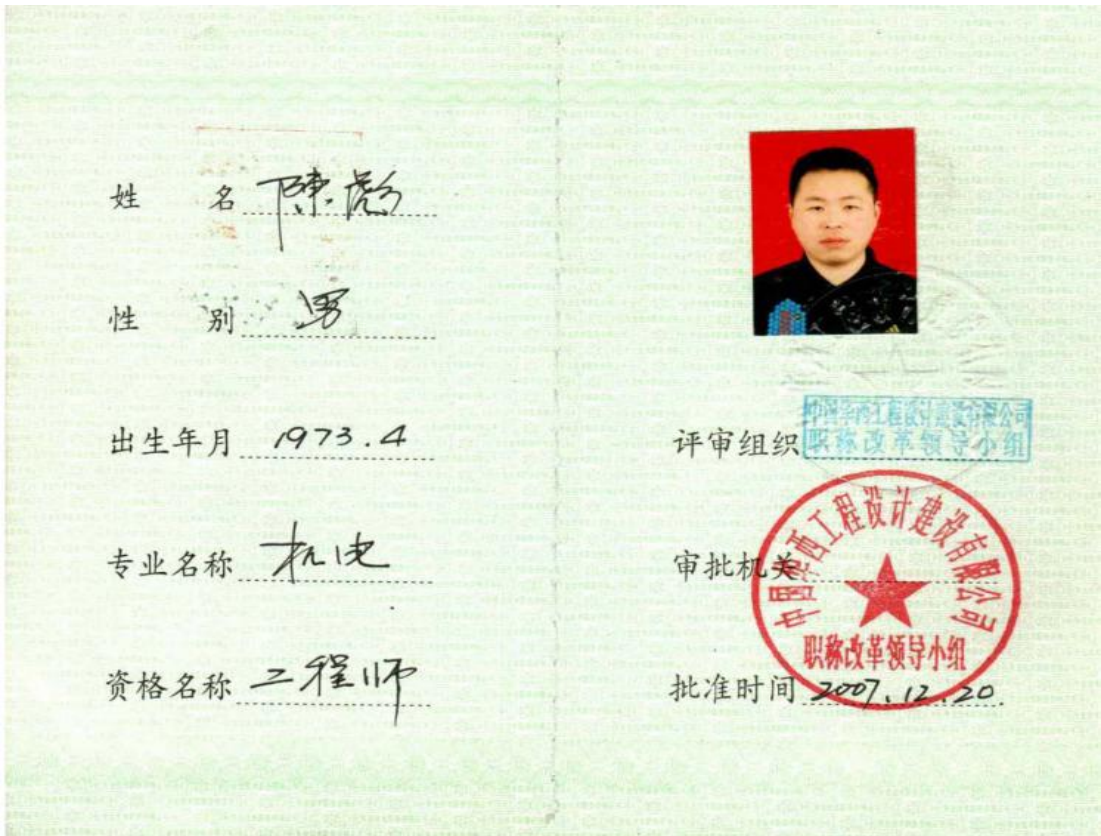 姓 名 陳彪
性 别 男
出生年月 1973.4
专业名称 机电
资格名称 工程师
评审组织 中国华西工程设计建设有限公司
职称改革领导小组
审批机关
中国华西工程设计建设有限公司
职称改革领导小组
批准时间 2007.12.20